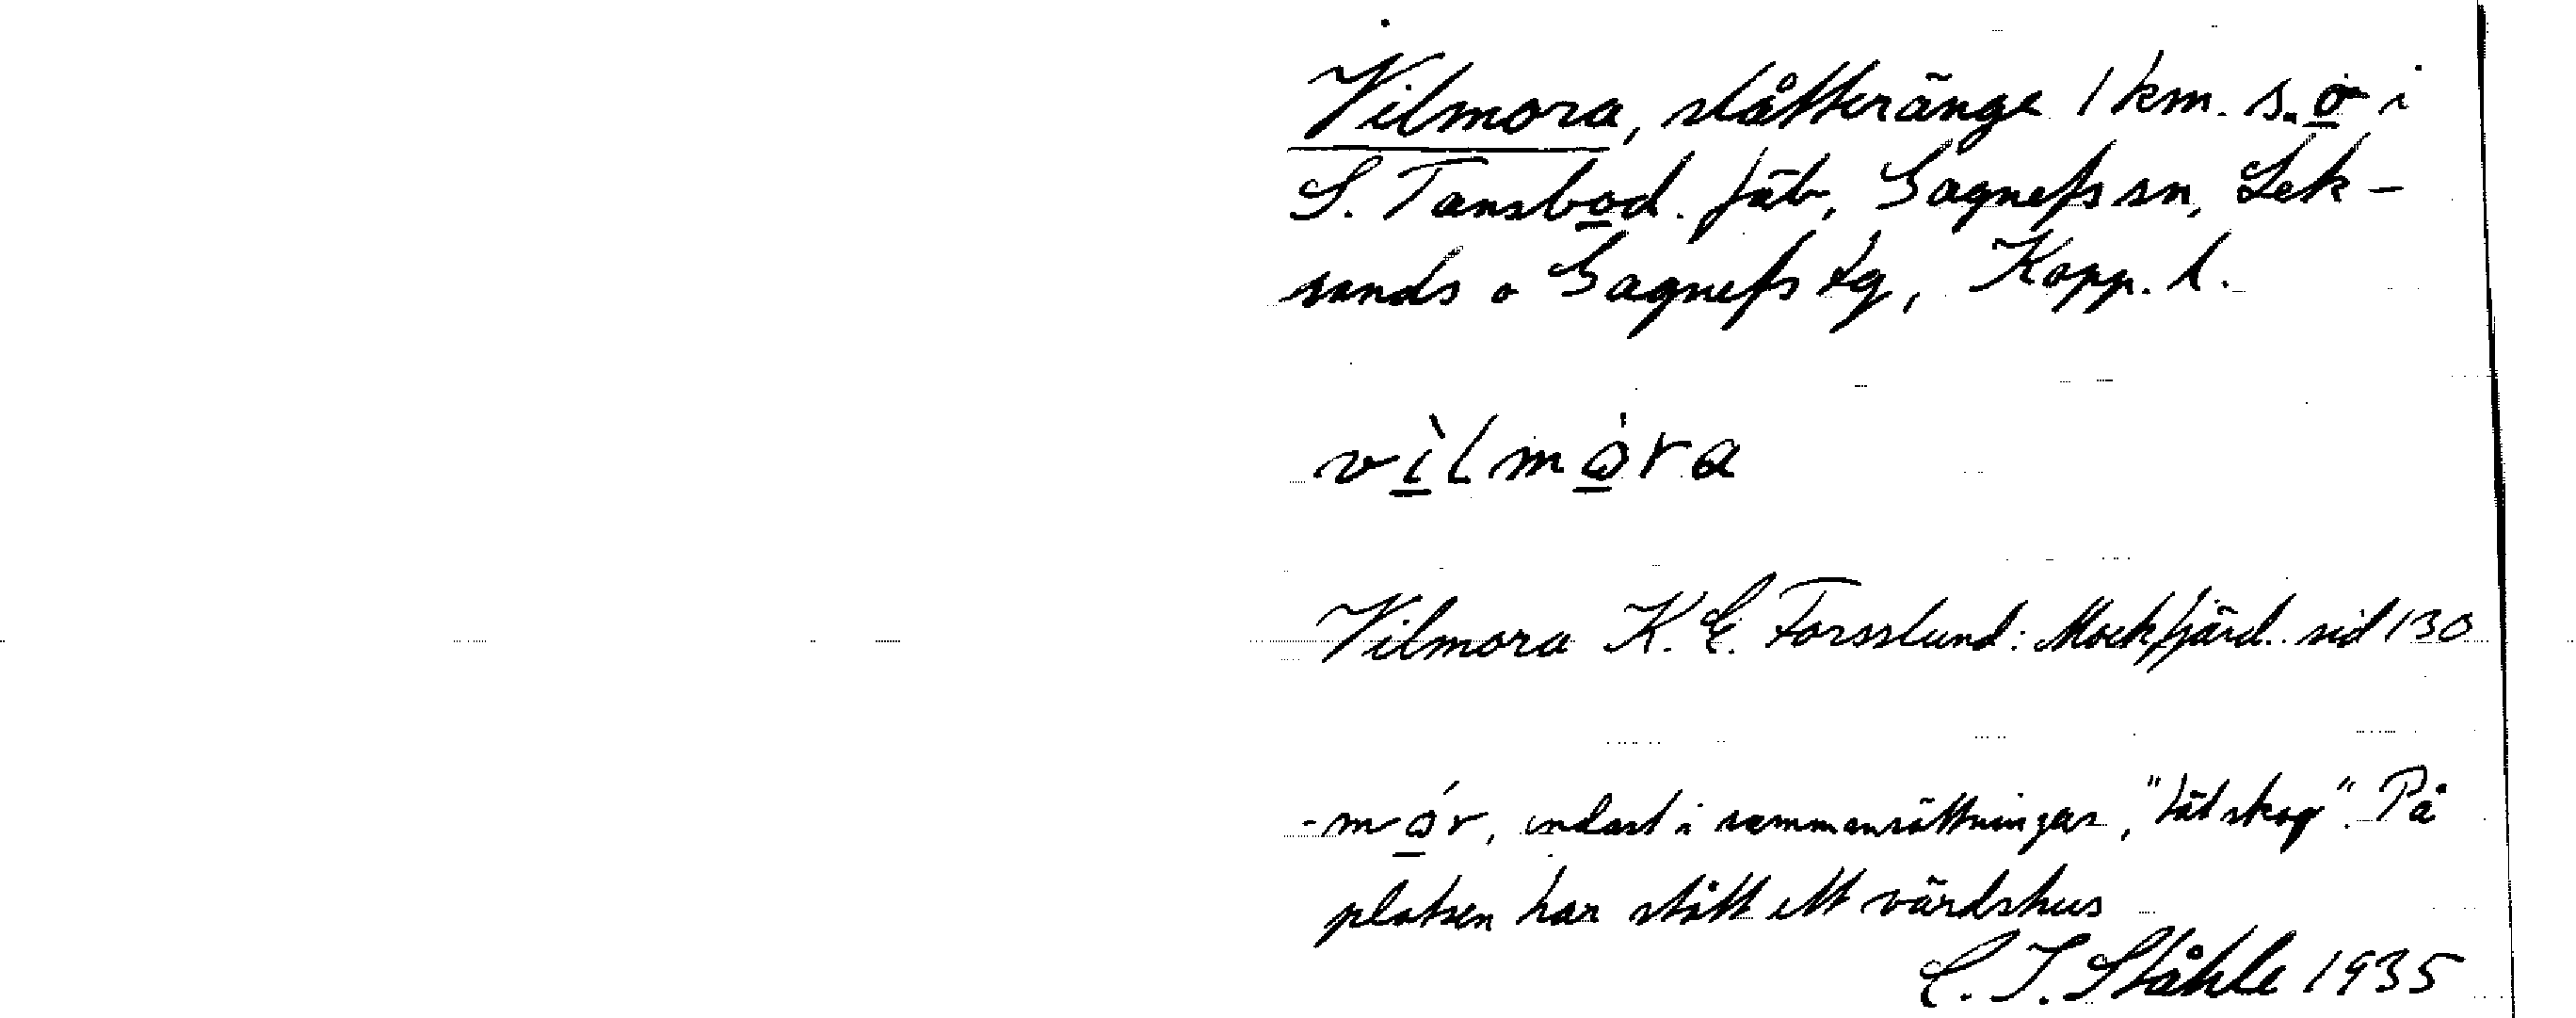 Vilmora, slåtteränge 1 km. s.ö i
S. Tansbod. fäb, Gagnefs sn, Lek-
sands o Gagnefs tg, Kopp. l.
vìlmòra
Vilmora K. E. Forsslund: Mockfjärd. sid 130
-mór, endast i sammansättningar, "tät skog". På
platsen har stått ett värdshus
C. I. Ståhle 1935